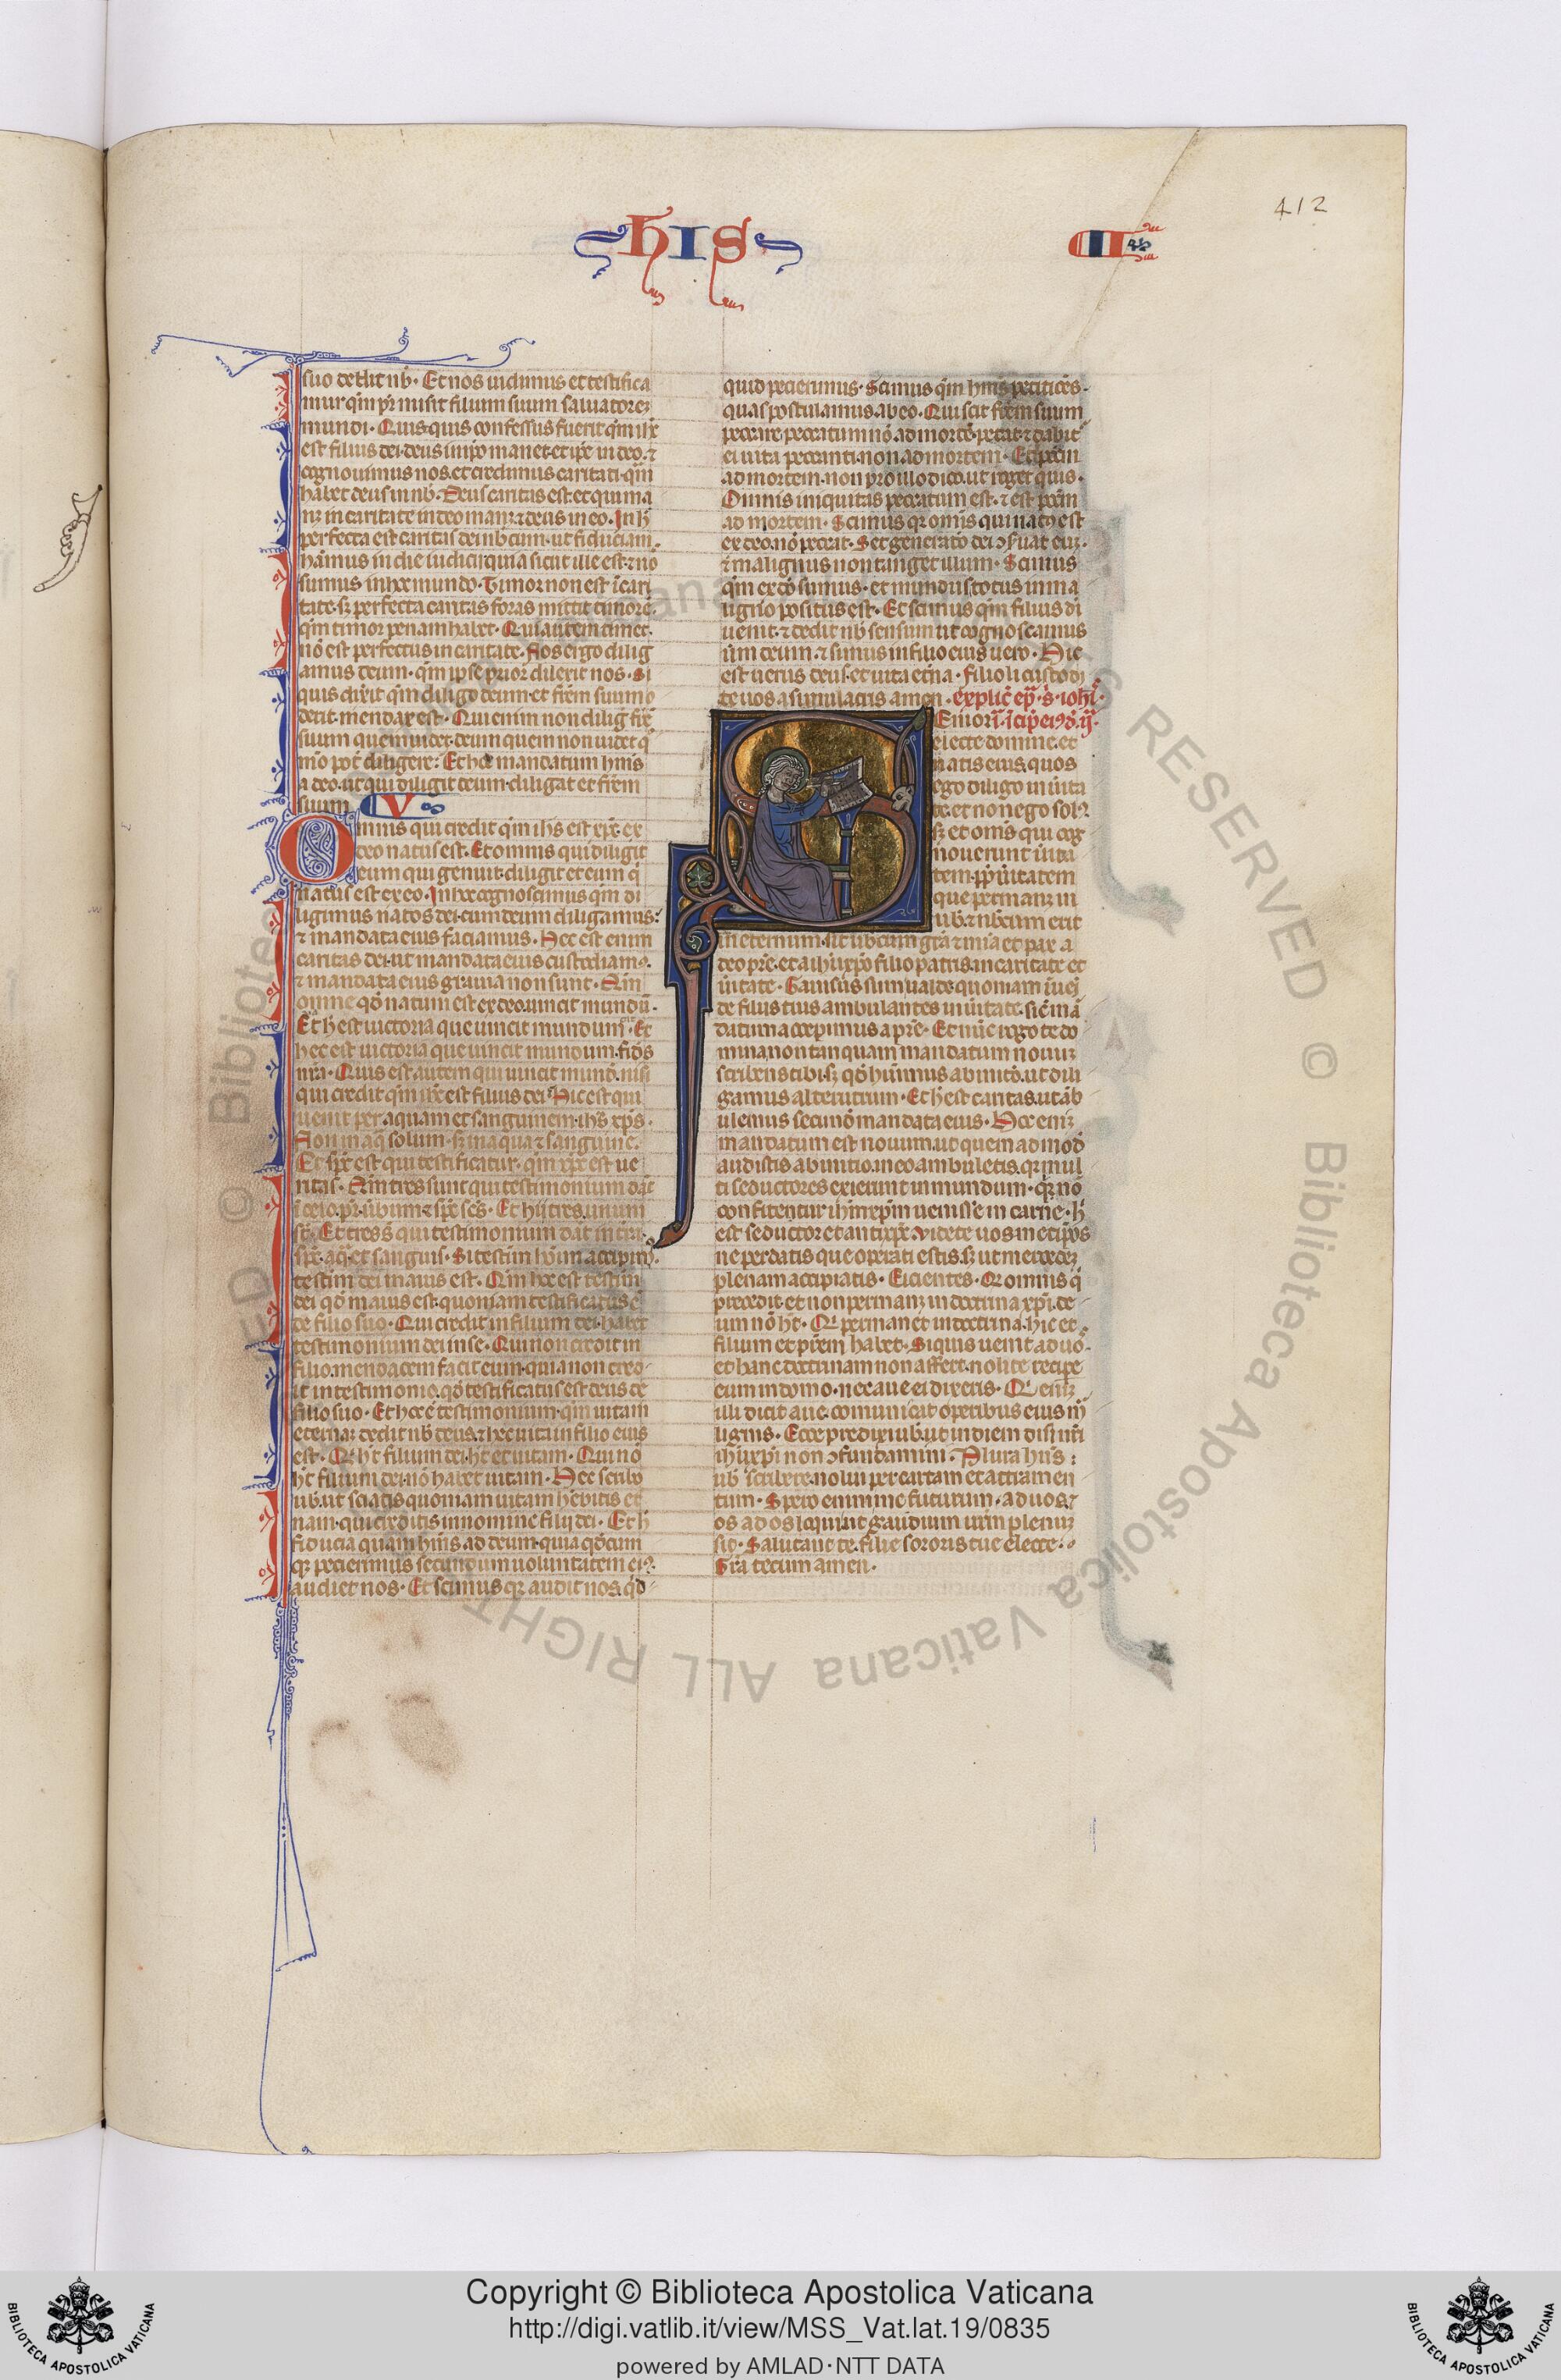 412
hIS
II
suo dedit nb. Et nos uidimus et testifica
mur qm pr misit filium suum saluatorez
mundi. Quisquis confessus fuerit qm ihc
est filius dei. deus in ipo manet. et ipe in deo. ⁊
cognouimus nos. et credimus caritati. qm
habet deus in nb. Deus caritas est. et qui ma
nz in caritate in deo manz. ⁊ deus in eo. In h
perfecta est caritas dei nb cum. ut fiduciam.
hamus in die iudicii. quia sicut ille est. ⁊ nos
sumus in hoc mundo. Timor non est i cari
tate. sz perfecta caritas foras mittit timore.
qm timor penam habet. Qui autem timet.
no est perfectus in caritate. Nos ergo dilig
amus deum. qm ipse prior dilexit nos. Si
quis dixit qm diligo deum. et frem suum o
derit. mendax est. Qui enim non dilig fre
suum quem uidet. deum quem non uidet q
mo pot diligere: Et hoc mandatum hms
a deo. ut qui diligit deum. diligat et frem
suum V
Omnis qui credit qm ihs est xpc. ex
deo natus est. Et omnis qui diligit
eum qui genuit. diligit et eum q
natus est ex eo. In hoc cognoscimus qm di
ligimus natos dei. cum deum diligamus.
⁊ mandata eius faciamus. Hec est enim
caritas dei. ut mandata eius custodiamꝰ.
⁊ mandata eius grauia non sunt. Qm
omne qd natum est ex deo. uincit mundu.
Et h est uictoria que uincit mundum. Et
hec est uictoria que uincit mundum. fides
nra. Quis est autem qui uincit mund. nisi
qui credit qm ihc est filius dei. Hic est qui
uenit per aquam et sanguinem. ihs xps.
Non in aq solum. sz in aqua ⁊ sanguine.
Et spc est qui testificatur. qm xpc est ue
ritas. Qm tres sunt qui testimonium dat
i celo. pr. ubum. ⁊ spc scs. Et hii tres unum
st. Et tres s qui testimonium dat in tra.
spc. aq. et sanguis. Si testim hoim accipimꝰ.
testim dei maius est. Qm hoc est testim
dei qd maius est. quoniam testificatus e
de filio suo. Qui credit in filium dei. habet
testimonium dei in se. Qui non credit in
filio. mendacem facit eum. quia non cred
it in testimonio. qd testificatus est deus de
filio suo. Et hoc e testimonium. qm uitam
eternaz dedit nb deus. ⁊ hec uita in filio eius
est. Q ht filium dei. ht et uitam. Qui no
ht filium dei. no habet uitam. Hec scribo
ub. ut sciatis quoniam uitam hebitis et
nam. qui creditis in nomine filij dei. Et h
fiducia quam hms ad deum. quia qdcum
qz pecierimus secundum uoluntatem eiꝰ.
audiet nos. Et scimus qz audit nos. qd
quid pecierimus. Scimus qm hms petitices.
quas postulamus ab eo. Qui scit frem suum
peccare peccatum no ad morte. petat. ⁊ dabit
ei uita peccanti. non ad mortem. Est pccm
ad mortem. non pro illo dico. ut roget quis.
Omnis iniquitas peccatum est. ⁊ est pccm
ad mortem. Scimus qz omis qui natꝰ est
ex deo. no peccat. Set generatio dei ↄseruat euz.
⁊ malignus non tanget illum. Scimus
qm ex do sumus. et mundus totus in ma
ligno positus est. Et scimus qm filius di
uenit. ⁊ dedit nb sensum ut cognoscamus
uum deum. ⁊ simus in filio eius uero. Hic
est uerus deus. et uita etna. filioli custodi
te uos a simulacris amen. explic epl. s. iohis.
Senior. incip eiusd. ij.
electe domine. et
natis eius. quos
ego diligo in uita
te. et non ego solꝰ.
sz et oms qui cog
nouerunt uita
tem. ppt uitatem
que permanz in
ub. ⁊ nbcum erit
in eternum. sit ubcum gra ⁊ mia et pax a
deo pre. et a ihu xpo filio patris. in caritate et
uitate. Gauisus sum ualde quoniam iueni
de filiis tuis ambulantes in uitate. sic ma
datum accepimus a pre. Et nuc rogo te do
mina. non tanquam mandatum nouuz
scribens tibi. sz qd huimus ab initio. ut dili
gamus alterutrum. Et h est caritas. ut ab
ulemus secundo mandata eius. Hoc eniz
mandatum est nouum. ut quem ad mod
audistis ab initio. in eo ambuletis. qz mul
ti seductores exierunt in mundum. qz no
confitentur ihm xpm uenisse in carne. h
est seductor et antixpc. Videte uos metipsos
ne perdatis que operati estis. sz ut mercedez
plenam accipiatis. Eicientes. Q omnis q
precedit. et non permanz in doctrina xpi. de
um no ht. Q permanet in doctrina. hic et
filium et prem habet. Si quis uenit ad uos.
et hanc doctrinam non affert. nolite recipe
eum in domo. nec aue ei dixeris. Q eniz
illi dicit aue. comunicat operibus eius ma
lignis. Ecce predixi ub. ut in diem dni nri
ihu xpi non ↄfundamini. Plura hns
ub scribere. nolui per cartam et attramen
tum. Spero enim me futurum. ad uos. ⁊
os ad os loqui. ut gaudium urm plenuz
sit. Salutant te. filie sororis tue electe.
Gra tecum amen.
© Biblioteca Apostolica Vaticana ALL RIGHTS RESERVED
Copyright © Biblioteca Apostolica Vaticana
http://digi.vatlib.it/view/MSS_Vat.lat.19/0835
powered by AMLAD·NTT DATA
BIBLIOTECA APOSTOLICA VATICANA
BIBLIOTECA APOSTOLICA VATICANA